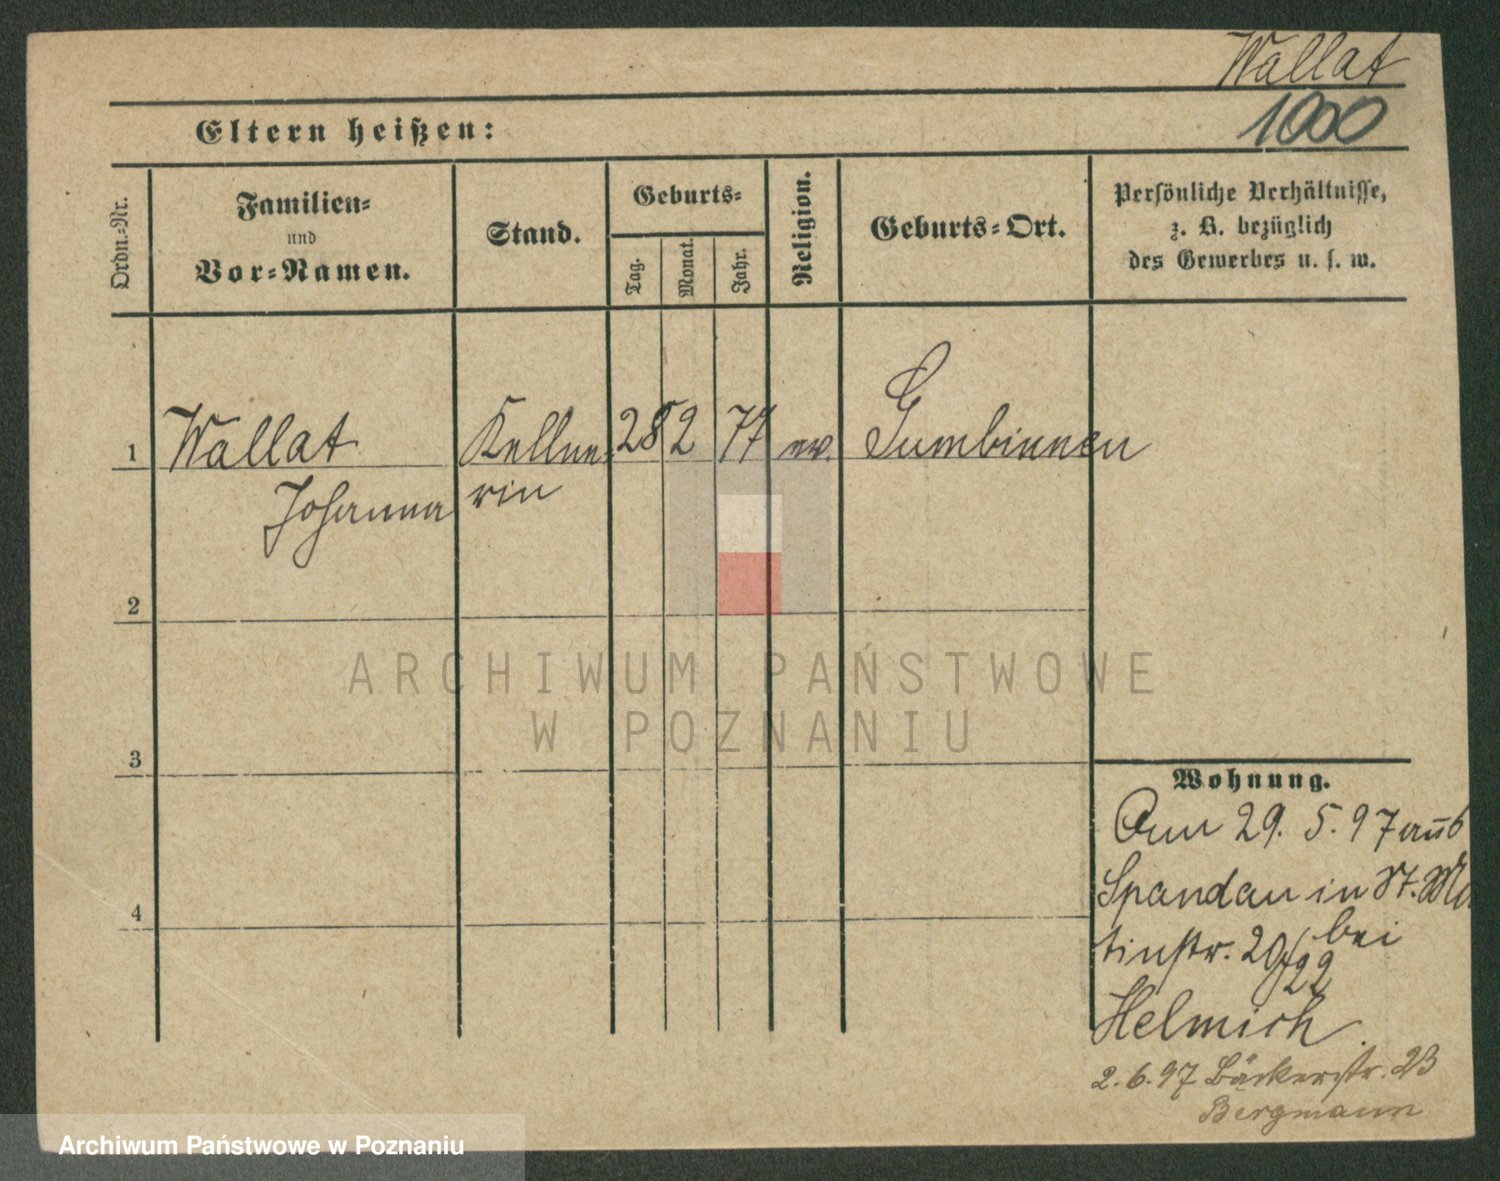 Wallat
1000
Eltern heißen:
Ordn.-Nr.
Familien-
und
Vor-Namen.
Stand.
Geburts-
Tag.
Monat.
Jahr.
Religion.
Geburts-Ort.
Persönliche Verhältnisse,
z. B. bezüglich
des Gewerbes u. s. w.
1 Wallat Kellne- 28 2 77 ev. Gumbinnen
Johanna rin
2
ARCHIWUM PAŃSTWOWE
W POZNANIU
3
Wohnung.
29. 5. 97 aus
Spandau in St. Mar
4
tinstr. 20/22 bei
Helmich.
2. 6. 97 Bäckerstr. 23
Bergmann
Archiwum Państwowe w Poznaniu